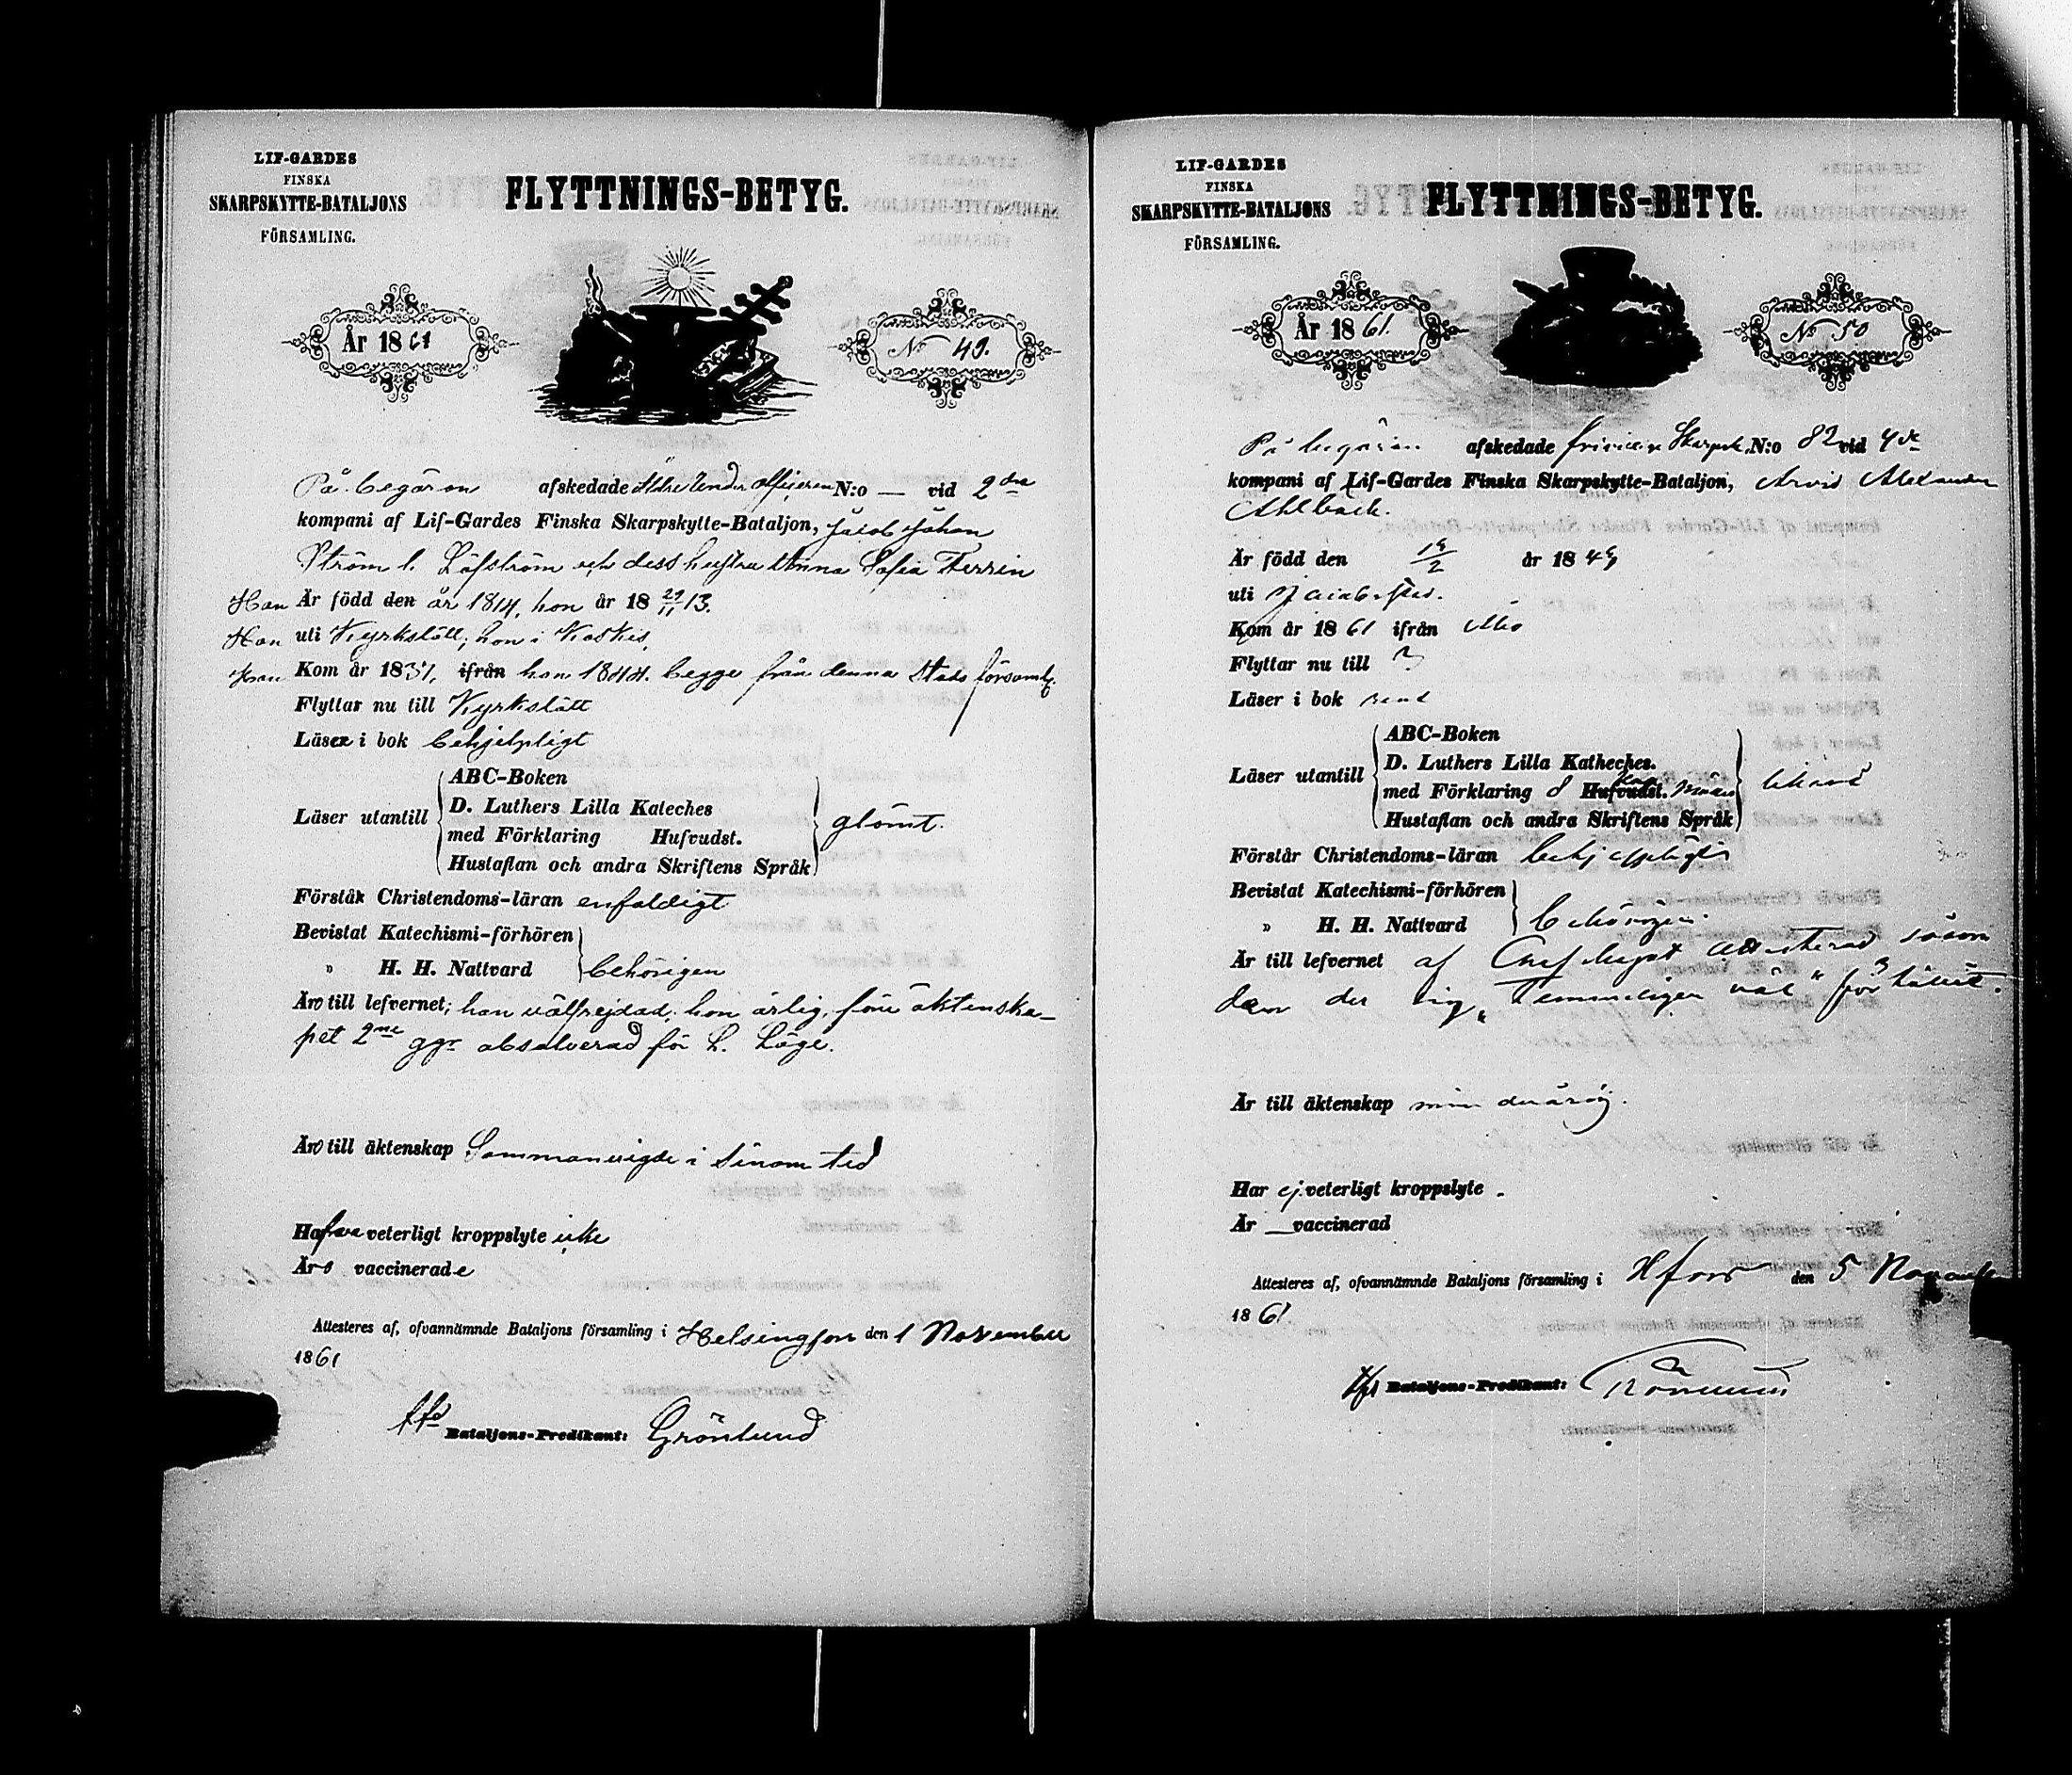 LIF-GARDES
FINSKA
SKARPSKYTTE-BATALJONS
FÖRSAMLING.
FLYTTNINGS-BETYG.
År 1861
No 49.
På begäran afskedade Äldre Under officeren N:o — vid 2dra
kompani af Lif-Gardes Finska Skarpskytte-Bataljon, Jacob Johan
Ström l. Löfström och dess hustru Anna Sofia Ferrin
Han Är född den år 1814, hon år 18 29/11 13.
Han uti Kyrkslätt; hon i Koskis,
Han Kom år 1831, ifrån hon 1844. begge från denna Stads församlg.
Flyttar nu till Kyrkslätt
Läser i bok behjelpligt
Läser utantill
ABC-Boken
D. Luthers Lilla Kateches
med Förklaring Hufvudst.
Hustaflan och andra Skriftens Språk
glömt.
Förstår Christendoms-läran enfaldigt
Bevistat Katechismi-förhören
" H. H. Nattvard
behörigen
Äro till lefvernet; han välfrejdad; hon ärlig, före äktenska-
pet 2ne ggr absolverad för L. Läge.
Äro till äktenskap Sammanvigde i sinom tid
Hafva veterligt kroppslyte icke
Äro vaccinerade
Attesteres af, ofvannämnde Bataljons församling i Helsingfors den 1 November
1861
Bataljons-Predikant: Grönlund
LIF-GARDES
FINSKA
SKARPSKYTTE-BATALJONS
FÖRSAMLING.
FLYTTNINGS-BETYG.
År 1861.
No 50
På begäran afskedade Skarpsk. N:o 82 vid 4de
kompani af Lif-Gardes Finska Skarpskytte-Bataljon, Arvid Alexander
Ahlbäck.
Är född den 19/2 år 18 49
uti
Kom år 1861 ifrån Åbo
Flyttar nu till ?
Läser i bok rent
Läser utantill
ABC-Boken
D. Luthers Lilla Katheches.
med Förklaring Hufvudst.
Hustaflan och andra Skriftens Språk
Förstår Christendoms-läran behjelpligt
Bevistat Katechismi-förhören
" H. H. Nattvard
behörigen.
Är till lefvernet af attesterad såsom
den der sig "temmeligen väl" för hållit.
Är till äktenskap minderårig.
Har ej veterligt kroppslyte.
Är — vaccinerad
Attesteres af, ofvannämnde Bataljons församling i Hfors den 5 November
1861
Bataljons-Predikant: Grönlund